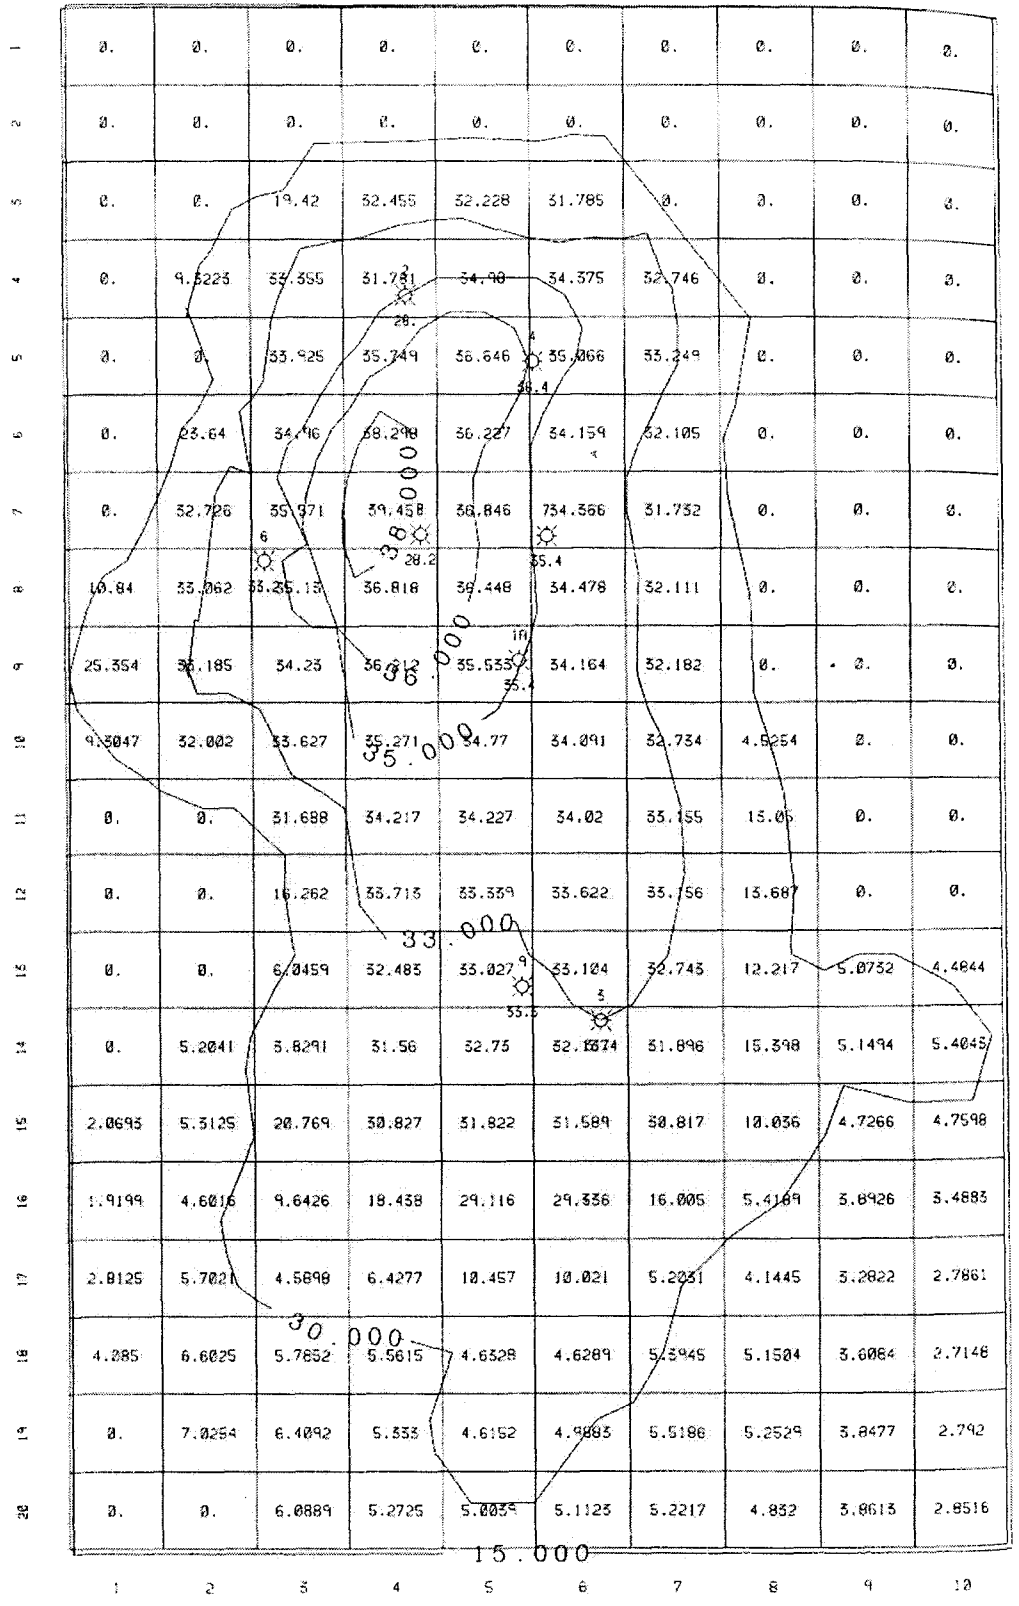 1 0. 0. 0. 0. 0. 0. 0. 0. 0. 0.
2 0. 0. 0. 0. 0. 0. 0. 0. 0. 0.
3 0. 0. 19.42 32.455 32.228 31.785 0. 0. 0. 0.
4 0. 9.3223 33.355 31.781 34.98 34.375 32.746 0. 0. 0.
2
28.
4
5 0. 0. 33.925 35.749 36.646 35.066 33.249 0. 0. 0.
36.4
6 0. 23.64 34.96 38.298 36.227 34.159 32.105 0. 0. 0.
38.000
7 0. 32.726 35.971 39.458 36.846 734.366 31.732 0. 0. 0.
6
28.2 35.4
8 10.84 33.062 33.2 35.13 36.818 36.448 34.478 32.111 0. 0. 0.
1A
9 25.354 33.185 34.23 36.212 35.533 34.164 32.182 0. 0. 0.
36.000
35.4
10 9.3047 32.002 33.627 35.271 34.77 34.091 32.734 4.5254 0. 0.
35.000
11 0. 0. 31.688 34.217 34.227 34.02 33.155 13.05 0. 0.
12 0. 0. 16.262 33.713 33.339 33.622 33.156 13.687 0. 0.
33.000
13 0. 0. 6.0459 32.483 33.027 33.104 32.743 12.217 5.0732 4.4844
9
33.3
3
14 0. 5.2041 3.8291 31.56 32.73 31.896 15.398 5.1494 5.4045
15 2.0693 5.3125 20.769 30.827 31.822 31.589 30.817 10.036 4.7266 4.7598
16 1.9199 4.6016 9.6426 18.438 29.116 29.336 16.005 5.4189 3.8926 3.4883
17 2.8125 5.7021 4.5898 6.4277 10.457 10.021 5.2031 4.1445 3.2822 2.7861
30.000
18 4.085 6.6025 5.7832 5.5615 4.6328 4.6289 5.3945 5.1504 3.6084 2.7148
19 0. 7.0254 6.4092 5.333 4.6152 4.9883 5.5186 5.2529 3.8477 2.792
20 0. 0. 6.0889 5.2725 5.0039 5.1123 5.2217 4.832 3.8613 2.8516
15.000
1 2 3 4 5 6 7 8 9 10